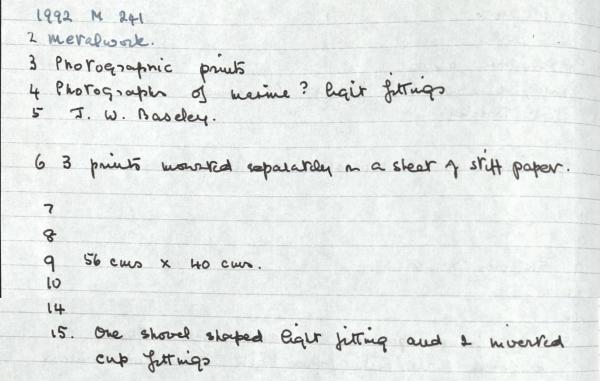 1992 M 241
2 Metalwork.
3 Photographic prints
4 Photographs of marine? light fittings
5 J. W. Baseley.
6 3 prints mounted separately on a sheet of stiff paper.
7
8
9 56 cms x 40 cms.
10
14
15. One shovel shaped light fitting and 2 inverted
cup fittings